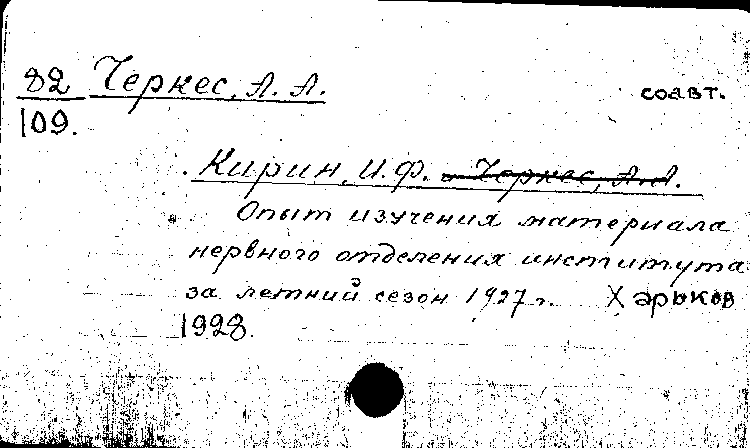 82 Черкес, А. А.
соавт.
109.
Кирин, И. Ф. и Черкес, А. А.
Опыт изучения материала
нервного отделения института
за летний сезон 1927 г. Харьков
1928.